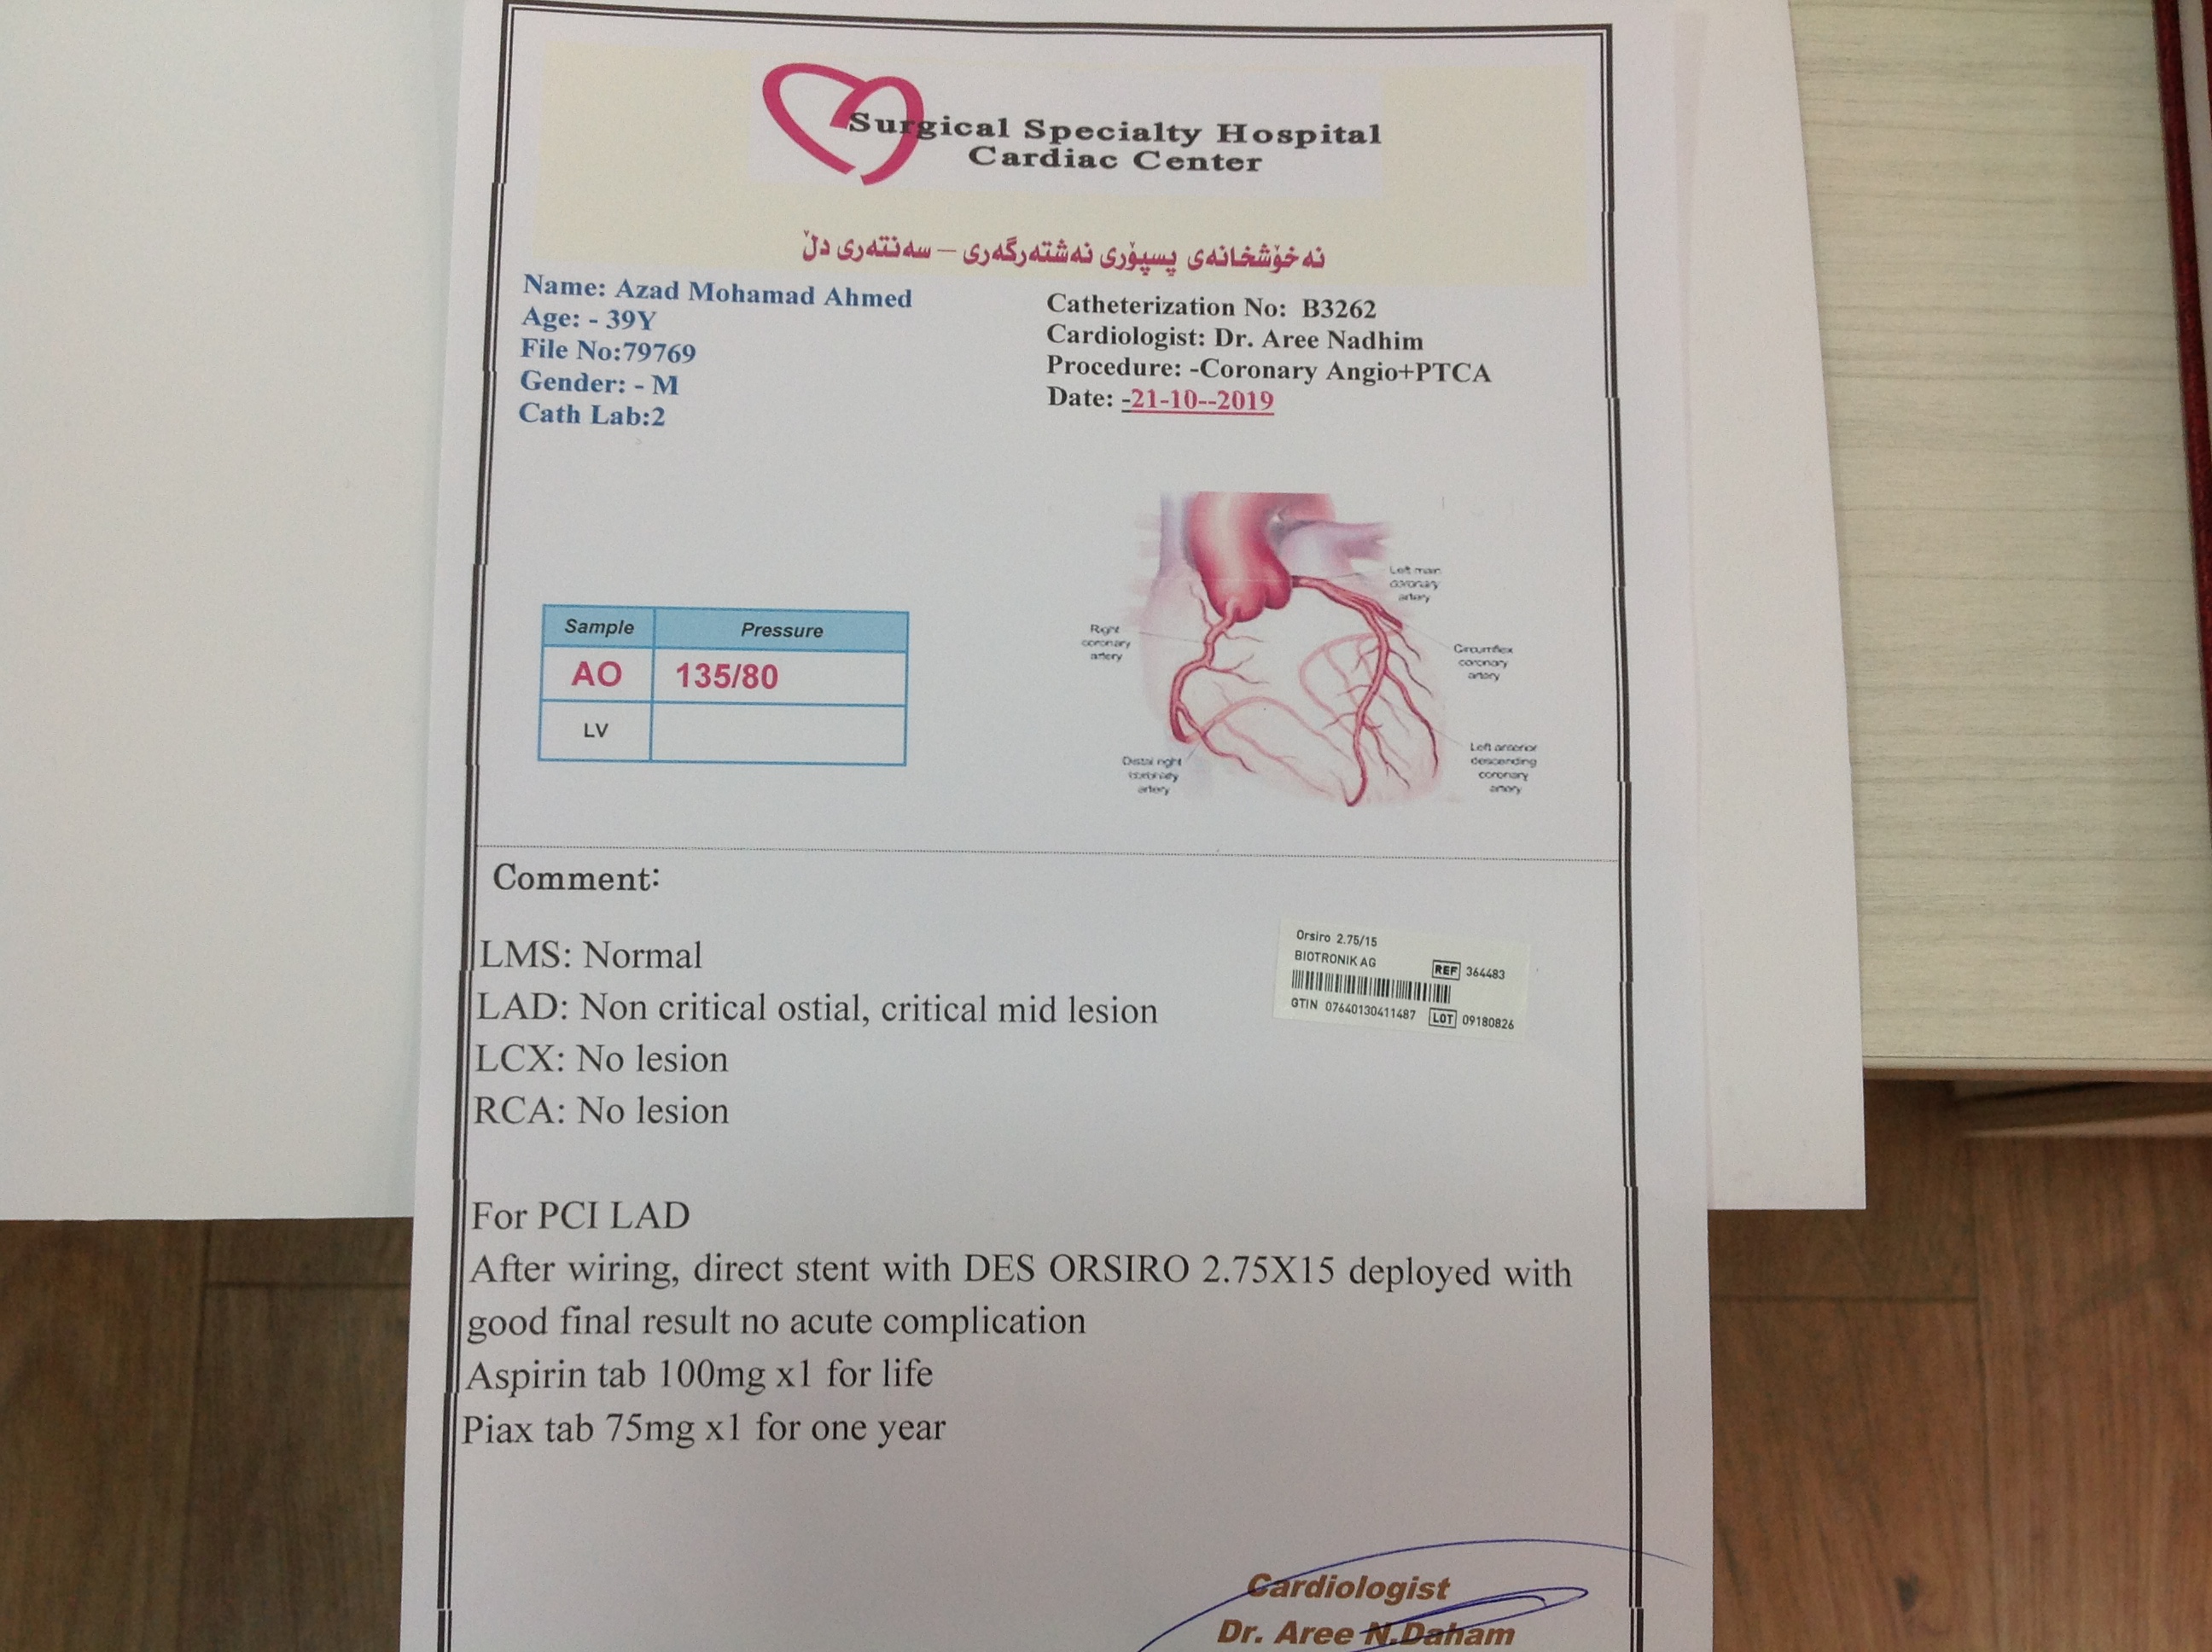 Surgical Specialty Hospital
Cardiac Center
نەخۆشخانەی پسپۆری نەشتەرگەری – سەنتەری دڵ
Name: Azad Mohamad Ahmed
Age: - 39Y
File No:79769
Gender: - M
Cath Lab:2
Catheterization No: B3262
Cardiologist: Dr. Aree Nadhim
Procedure: -Coronary Angio+PTCA
Date: -21-10--2019
Sample Pressure
AO 135/80
LV
Left main
coronary
artery
Right
coronary
artery
Circumflex
coronary
artery
Left anterior
descending
coronary
artery
Distal right
coronary
artery
Comment:
LMS: Normal
LAD: Non critical ostial, critical mid lesion
LCX: No lesion
RCA: No lesion
Orsiro 2.75/15
BIOTRONIK AG REF 364483
GTIN 07640130411487 LOT 09180826
For PCI LAD
After wiring, direct stent with DES ORSIRO 2.75X15 deployed with
good final result no acute complication
Aspirin tab 100mg x1 for life
Piax tab 75mg x1 for one year
Cardiologist
Dr. Aree N.Daham